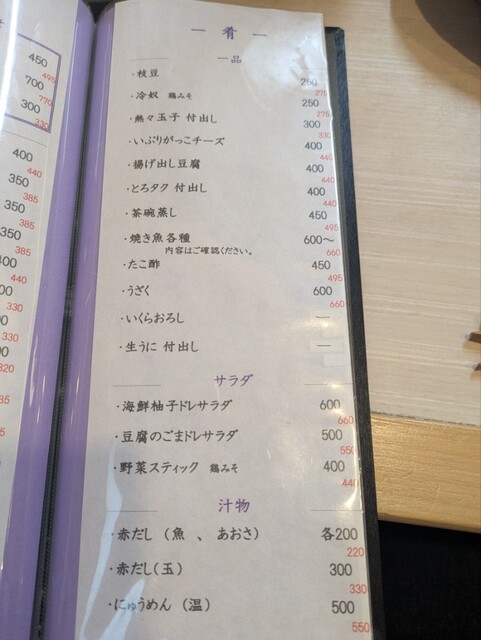 450
495
700
770
300
330
400
440
350
385
350
385
350
385
400
440
330
330
320
一 肴 一
一品
・枝豆 250
275
・冷奴 鶏みそ 250
275
・熱々玉子 付出し 300
330
・いぶりがっこチーズ 400
440
・揚げ出し豆腐 400
440
・とろタク 付出し 400
440
・茶碗蒸し 450
495
・焼き魚各種 600～
660
内容はご確認ください。
・たこ酢 450
495
・うざく 600
660
・いくらおろし —
・生うに 付出し —
サラダ
・海鮮柚子ドレサラダ 600
660
・豆腐のごまドレサラダ 500
550
・野菜スティック 鶏みそ 400
440
汁物
・赤だし（魚 、 あおさ） 各200
220
・赤だし（玉） 300
330
・にゅうめん（温） 500
550